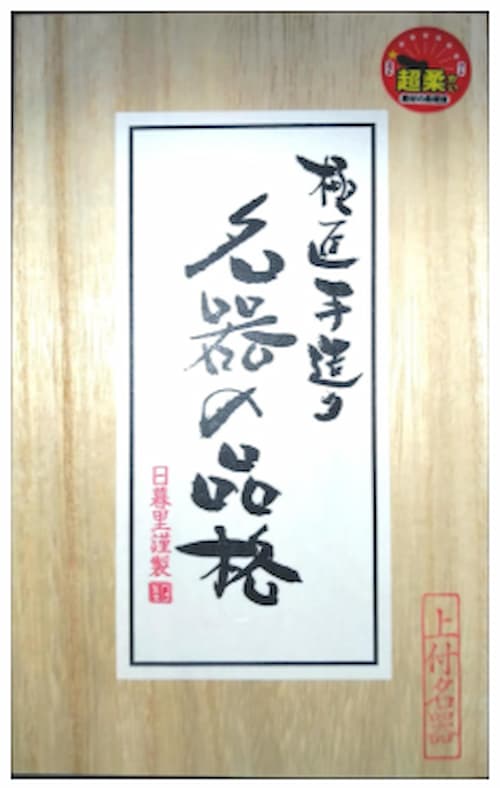 極匠手造り
名器の品格
日暮里謹製
上付名器
超柔